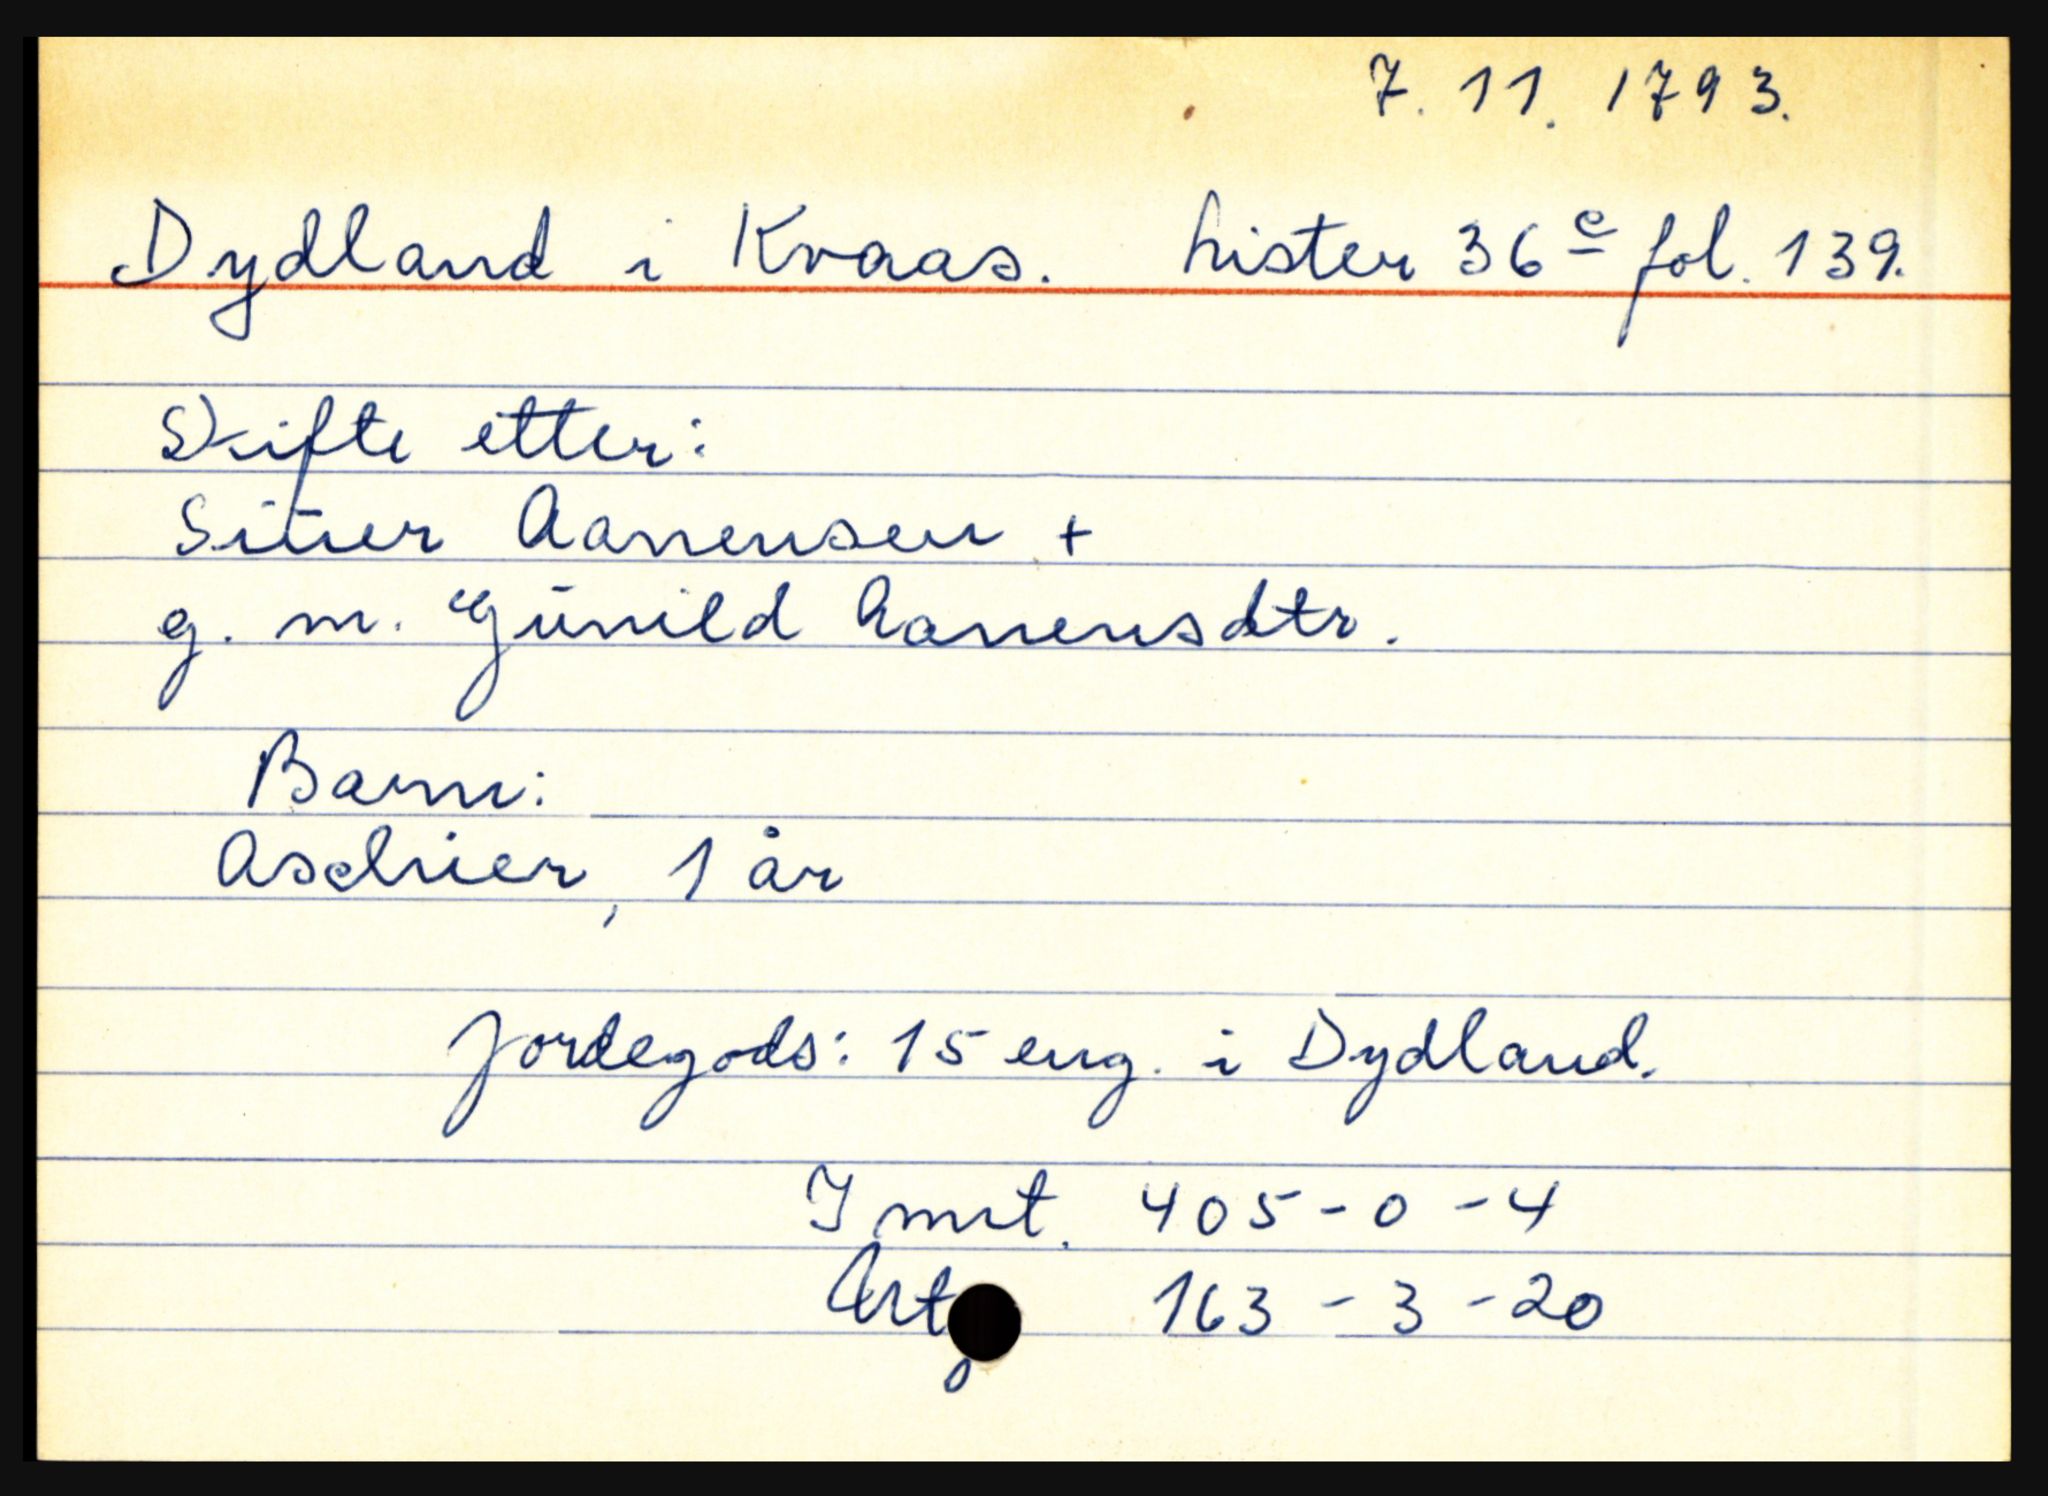 7. 11. 1793.
Dydland i Kvaas. Lister 36 c fol. 139.
Skifte etter:
Sivier Aanensen +
g. m. Gūnild Aanensdtr.
Barn:
Aschier, 1 år
Jordegods: 15 eng. i Dydland.
I mrt. 405 - 0 - 4
163 - 3 - 20